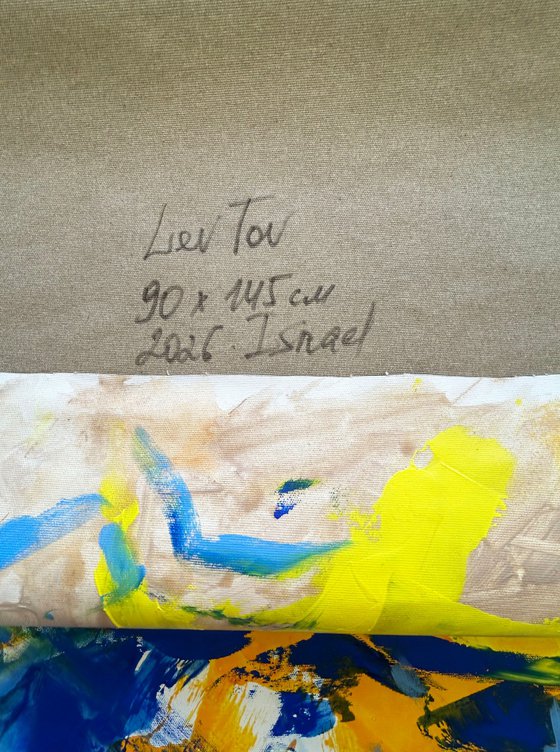 Liev Tov
90 x 145 см
2026. Israel